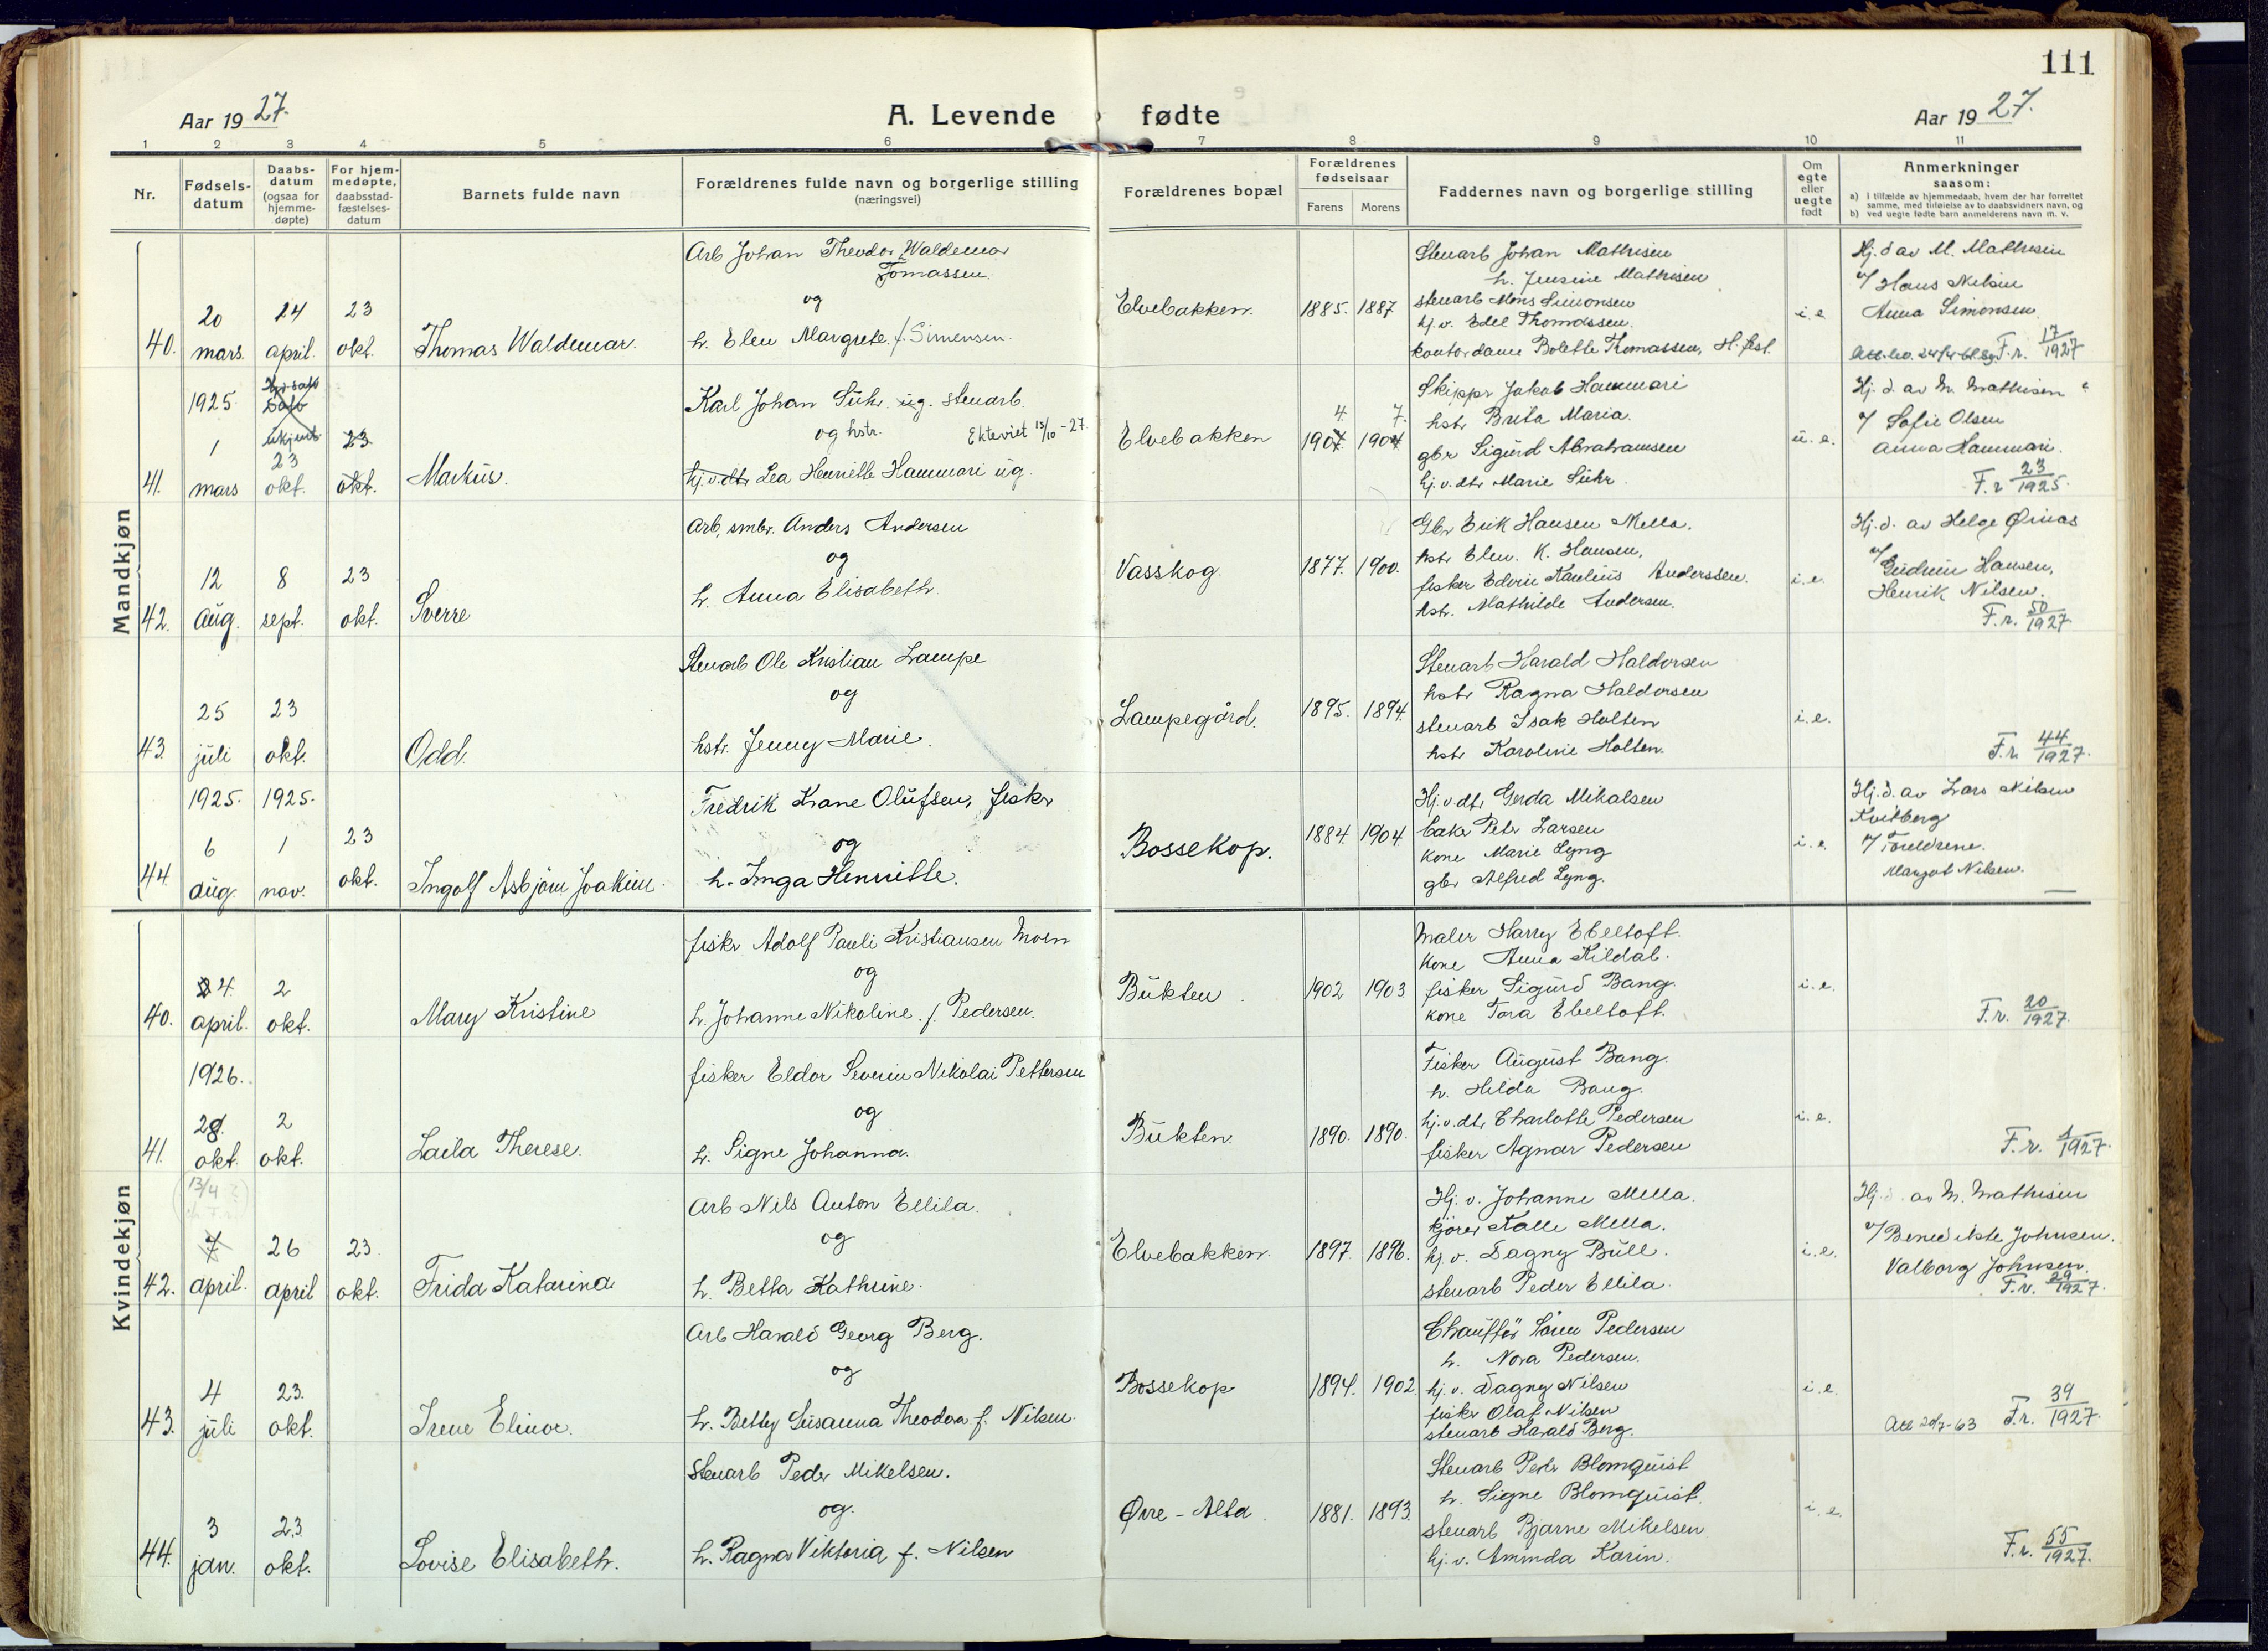 111
Aar 1927.
A. Levende fødte
Aar 1927.
1 2 3 4 5 6 7 8 9 10 11
Nr.
Fødsels-
datum
Daabs-
datum
(ogsaa for
hjemme-
døpte)
For hjem-
medøpte,
daabsstad-
fæstelses-
datum
Barnets fulde navn
Forældrenes fulde navn og borgerlige stilling
(næringsvei)
Forældrenes bopæl
Forældrenes
fødselsaar
Farens Morens
Faddernes navn og borgerlige stilling
Om
egte
eller
uegte
født
Anmerkninger
saasom:
a) i tilfælde av hjemmedaab, hvem der har forrettet
samme, med tilføielse av to daabsvidners navn, og
b) ved uegte fødte barn anmelderens navn m. v.
Mandkjøn
40.
20
mars.
24
april.
23
okt.
Thomas Waldemar.
Arb Johan Theodor Waldemar
Tomassen.
og
h. Elen Margrete f. Simensen.
Elvebakken.
1885. 1887
Stenarb Johan Mathisen
h. Jensine Mathisen
stenarb Mons Simonsen
hj. v. Edel Thomassen.
kontordame Bolette Thomassen, H.fest.
i.e.
Hj. d av M. Mathisen
v/ Hans Nilsen
Anna Simonsen
F. r. 17/1927
41.
1925
1
mars
ukjent
23
okt.
23
okt.
Markus.
Karl Johan Suhr. ug. stenarb.
og hstr. Ekteviet 15/10 -27.
hj.v.dtr Lea Henriette Hammari ug.
Elvebakken
4. 7.
1907 1904
Skippr Jakob Hammari
hstr Brita Maria.
gbr Sigurd Abrahamsen
hj.v.dtr Marie Suhr.
u.e.
Hj. d. av M. Mathisen
v/ Sofie Olsen
Anna Hammari.
F. r 23/1925.
42.
12
aug.
8
sept.
23
okt.
Sverre
Arb, smbr. Anders Andersen
og
h. Anna Elisabeth.
Vasskog.
1877. 1900.
Gbr Erik Hansen Mella.
hstr Elen. K. Hansen,
fisker Edvin Paulius Anderssen.
hstr. Mathilde Andersen.
i.e.
Hj. d. av Helge Øinas
v/ Gudrun Hansen,
Henrik Nilsen.
F. r. 50/1927.
43.
25
juli
23
okt.
Odd.
Stenarb Ole Kristian Lampe
og
hstr. Jenny Marie.
Lampegård.
1895. 1894.
Stenarb Harald Haldorsen
hstr Ragna Haldorsen
stenarb Isak Holten
hstr Karoline Holten.
i.e.
F. r. 44/1927.
44
1925.
6
aug.
1925.
1
nov.
23
okt.
Ingolf Asbjörn Joakim.
Fredrik Krane Olufsen, fisker
og
h. Inga Henriette.
Bossekop.
1884. 1904.
Hj.v.dtr Gerda Mikalsen
baker Peter Larsen
kone Marie Lyng
gbr Alfred Lyng.
i.e.
Hj. d. av Lars Nilsen
Kvitberg
v/ Foreldrene.
Margot Nilsen.
Kvindekjøn
40.
24.
april.
2
okt.
Mary Kristine
fisker Adolf Pauli Kristiansen Moen
og
h. Johanne Nikoline. f. Pedersen.
Bukten.
1902 1903
Maler Harry Ebeltoft.
Kone Anna Kildal.
fisker Sigurd Bang.
kone Tora Ebeltoft.
i.e.
F. r. 20/1927.
41.
1926.
28.
okt.
2
okt.
Laila Therese.
fisker Eldor Severin Nikolai Pettersen
og
h. Signe Johanna.
Bukten.
1890. 1890.
Fisker August Bang.
h. Hilda Bang.
hj.v.dtr Charlotte Pedersen
fisker Agnar Pedersen
i.e.
F. r. 1/1927.
42.
13/4
7
april.
26
april
23.
okt.
Frida Katarina
Arb Nils Anton Ellila.
og
h. Betta Kathrine.
Elvebakken.
1897. 1896.
Hj. v. Johanne Mella.
kjører Kalle Mella.
hj. v. Dagny Bull.
stenarb Peder Ellila.
i.e.
Hj. d. av M. Mathisen
v/ Benedikte Johnsen.
Valborg Johnsen.
F. r. 29/1927.
43.
4
juli
23.
okt.
Irene Elinor.
Arb Harald Georg Berg.
og
h. Betty Susanna Theodora f. Nilsen.
Bossekop
1894. 1902.
Chaufför Sören Pedersen
h. Nora Pedersen.
hj. v. Dagny Nilsen
fisker Olaf Nilsen
stenarb Harald Berg.
i.e.
Att 20/7-63 F. r. 39/1927.
44.
3
jan.
23
okt.
Lovise Elisabeth.
Stenarb Peder Mikelsen.
og.
h. Ragna Viktoria f. Nilsen
Øvre - Alta.
1881. 1893.
Stenarb Peder Blomquist
h. Signe Blomquist.
stenarb Bjarne Mikelsen
hj. v. Aminda Karin.
i.e.
F. r. 55/1927.